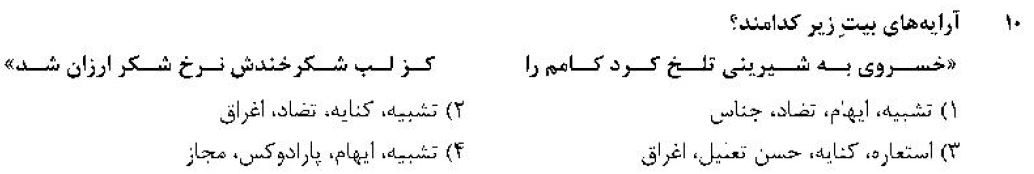 ۱۰ آرایه‌های بیتِ زیر کدامند؟
«خسروی به شیرینی تلخ کرد کامم را کز لب شکرخندش نرخ شکر ارزان شد»
۱) تشبیه، ایهام، تضاد، جناس ۲) تشبیه، کنایه، تضاد، اغراق
۳) استعاره، کنایه، حسن تعلیل، اغراق ۴) تشبیه، ایهام، پارادوکس، مجاز